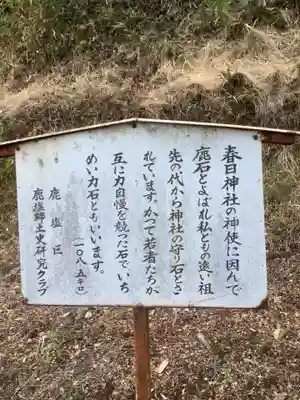 春日神社の神使に因んで
鹿石とよばれ私どもの遠い祖
先の代から神社の守り石とさ
れています。かつて若者たちが
互に力自慢を競った石で、いち
めい力石ともいいます。
(一〇八・五キロ)
鹿塩区
鹿塩郷土史研究クラブ